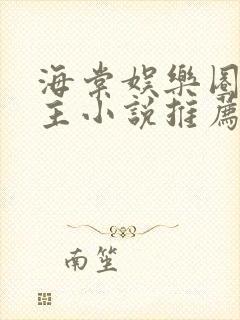 海棠娱樂圈
主小說推薦
南笙